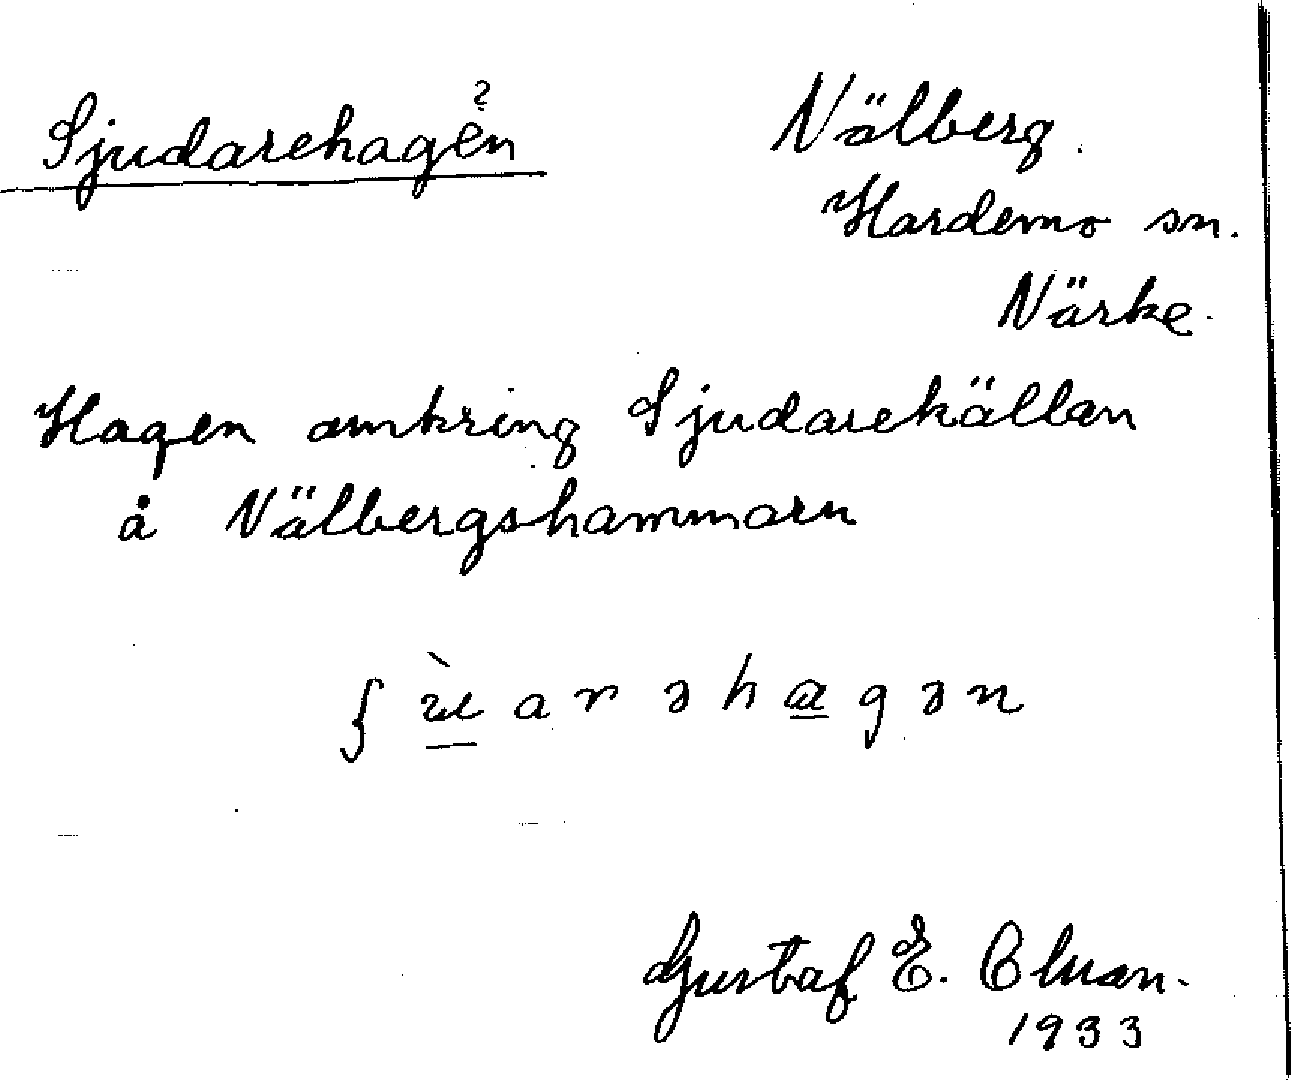 Sjudarehagen ?
Nälberg.
Hardemo sn.
Närke.
Hagen omkring Sjudarekällan
å Nälbergshammarn
ʃ ù a r ə h a g ə n
Gustaf E.
1933